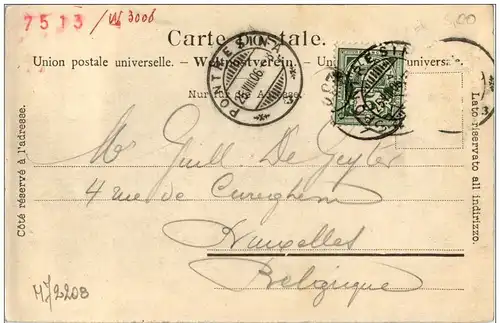 7513 /W 3006
5,00
Carte postale.
Union postale universelle. — Weltpostverein. — Un universel.
PONTRESINA
26.VIII.06.
PONTRESINA
Nur für die Adresse.
Côté réservé à l'adresse.
Lato riservato all indirizzo.
Mr Guill. De Guyter
4 rue de Cureghem
Bruxelles
Belgique
M72208